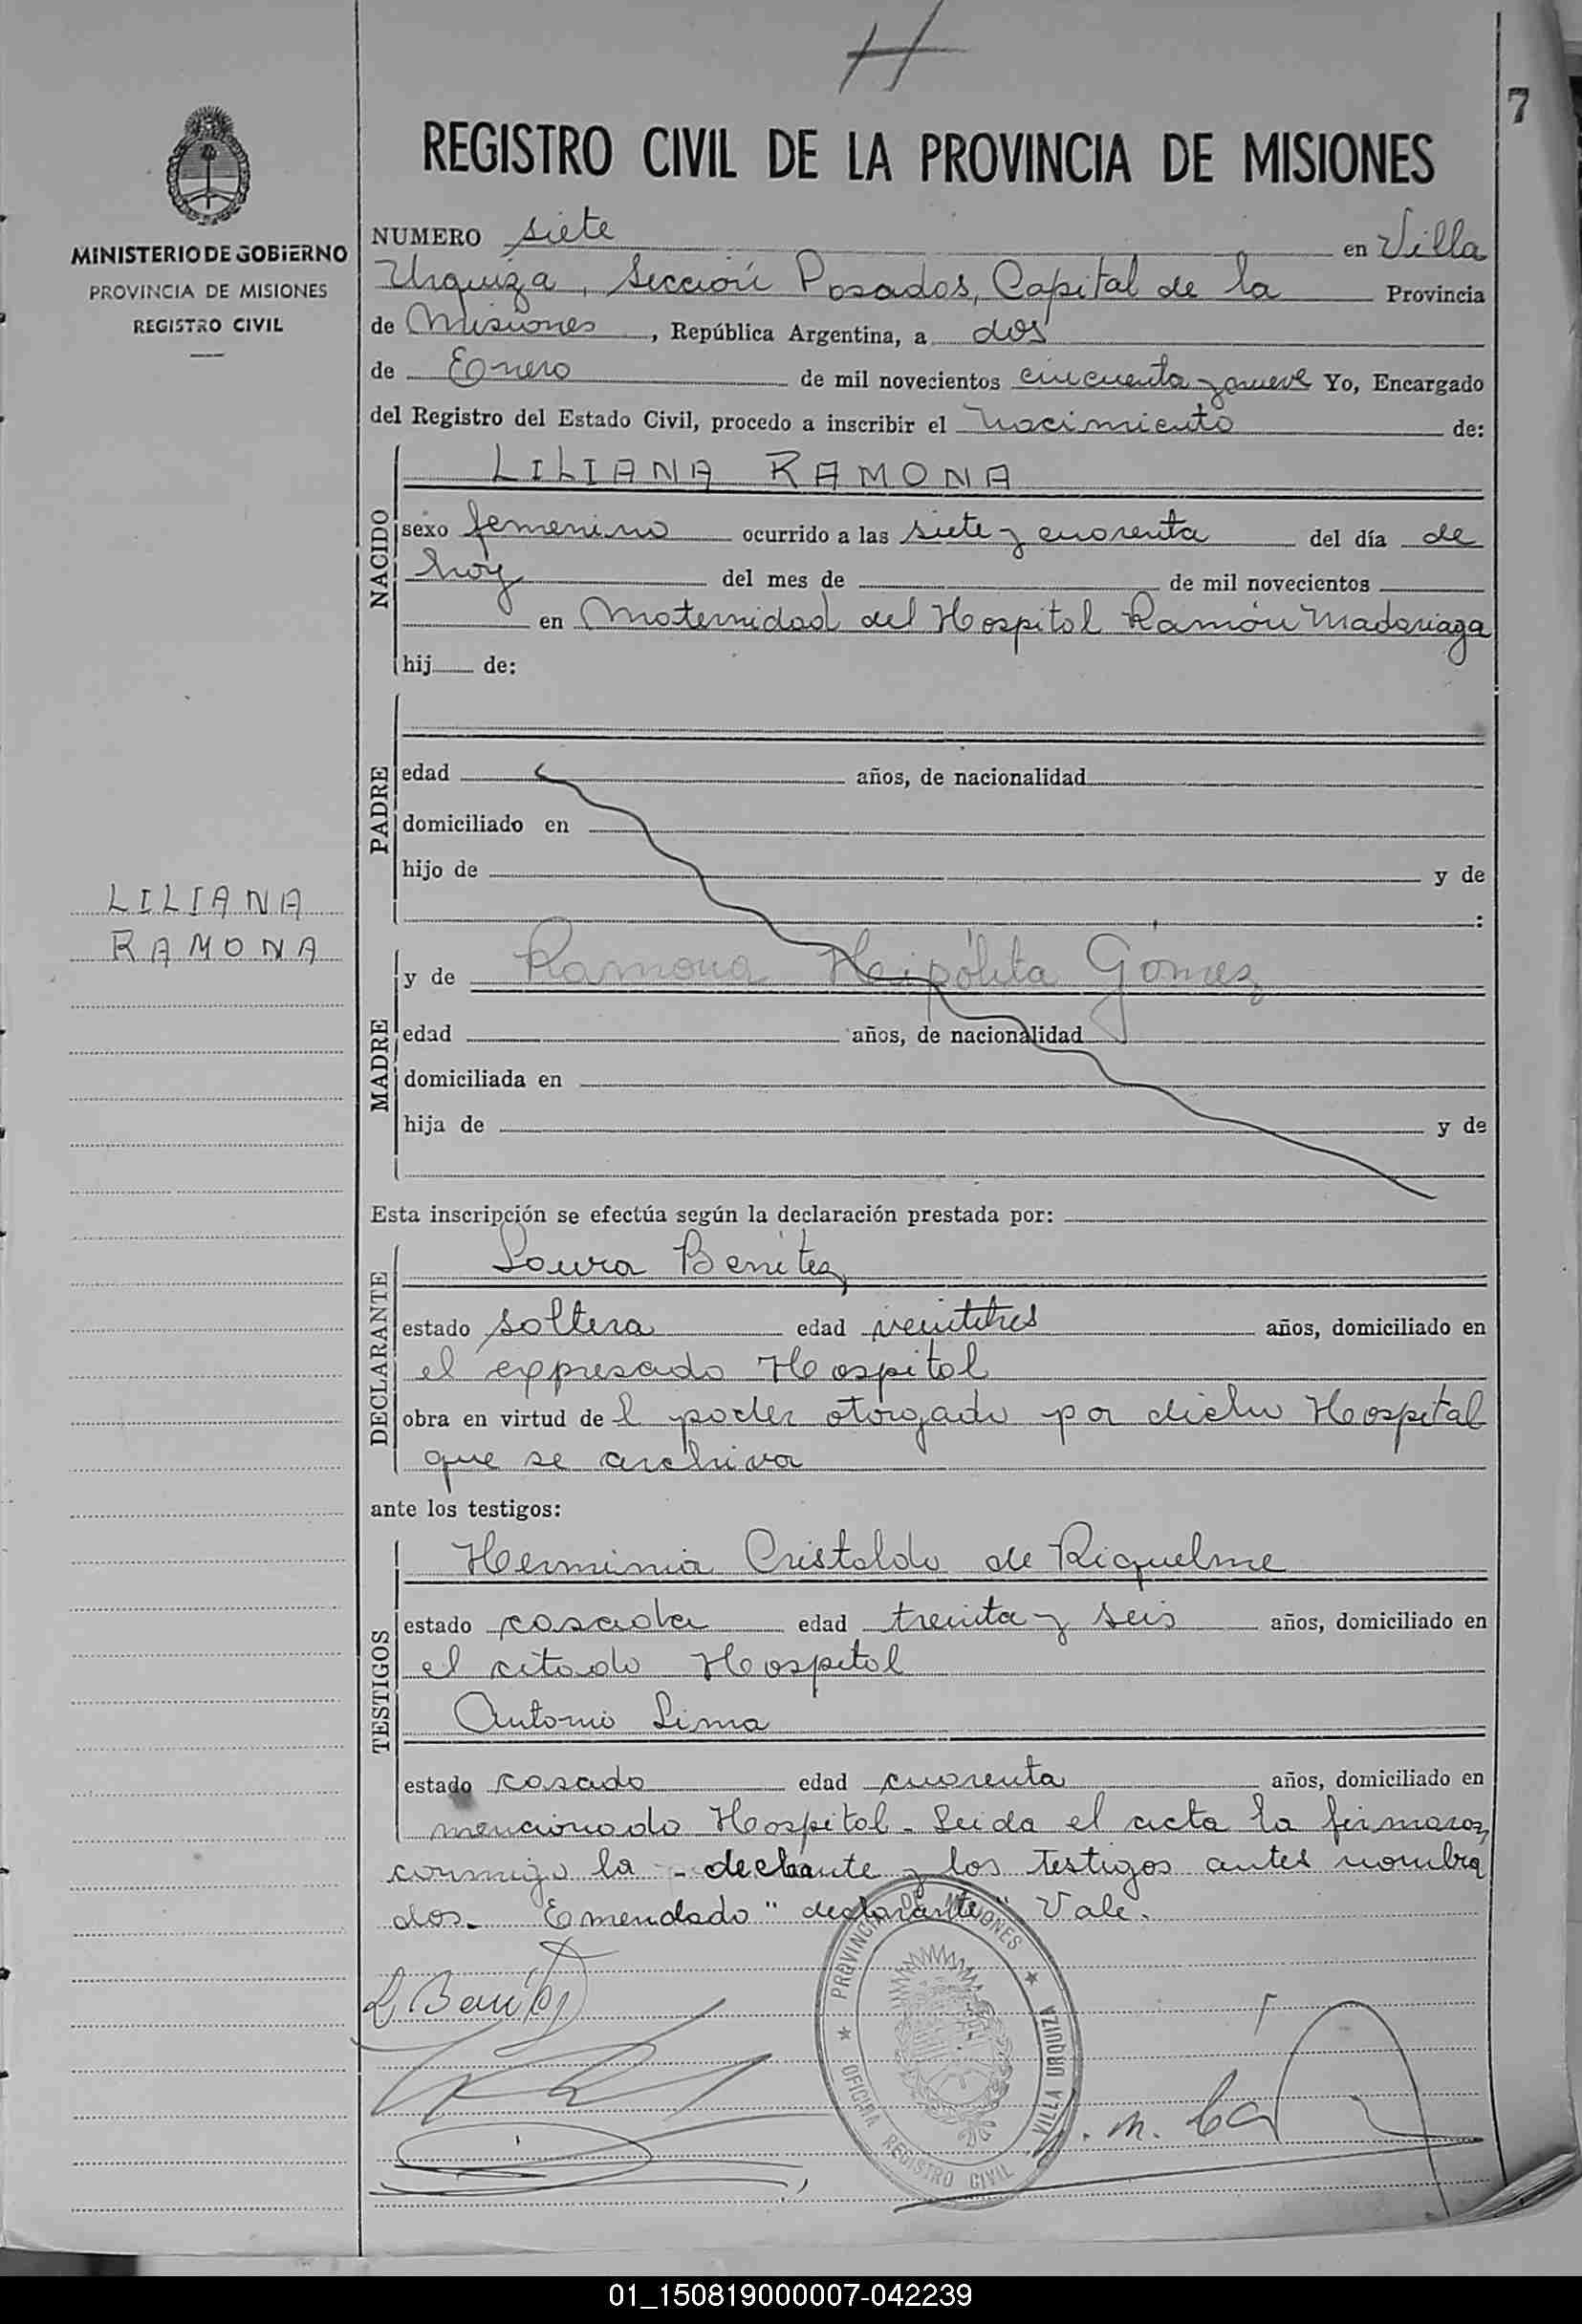 H
7
REGISTRO CIVIL DE LA PROVINCIA DE MISIONES
MINISTERIO DE GOBIERNO
PROVINCIA DE MISIONES
REGISTRO CIVIL
NUMERO siete en Villa
Urquiza, Sección Posadas, Capital de la Provincia
de Misiones, República Argentina, a dos
de Enero de mil novecientos cincuenta y nueve Yo, Encargado
del Registro del Estado Civil, procedo a inscribir el nacimiento de:
NACIDO
LILIANA RAMONA
sexo femenino ocurrido a las siete y cuarenta del día de
hoy del mes de de mil novecientos
en Maternidad del Hospital Ramón Madariaga
hij de:
PADRE
edad años, de nacionalidad
domiciliado en
hijo de y de
:
LILIANA
RAMONA
MADRE
y de Ramona Heipólita Gómez
edad años, de nacionalidad
domiciliada en
hija de y de
Esta inscripción se efectúa según la declaración prestada por:
DECLARANTE
Laura Benitez
estado soltera edad veintitres años, domiciliado en
el expresado Hospital
obra en virtud de l poder otorgado por dicho Hospital
que se archiva
ante los testigos:
TESTIGOS
Herminia Cristaldo de Riquelme
estado casada edad treinta y seis años, domiciliado en
el citado Hospital
Antonio Lima
estado casado edad cuarenta años, domiciliado en
mencionado Hospital - Leida el acta la firmaron,
conmigo la declarante y los testigos antes nombra
dos. Emendado "declarante" Vale.
L. Benitez
PROVINCIA DE MISIONES
VILLA URQUIZA
OFICINA REGISTRO CIVIL
01_150819000007-042239